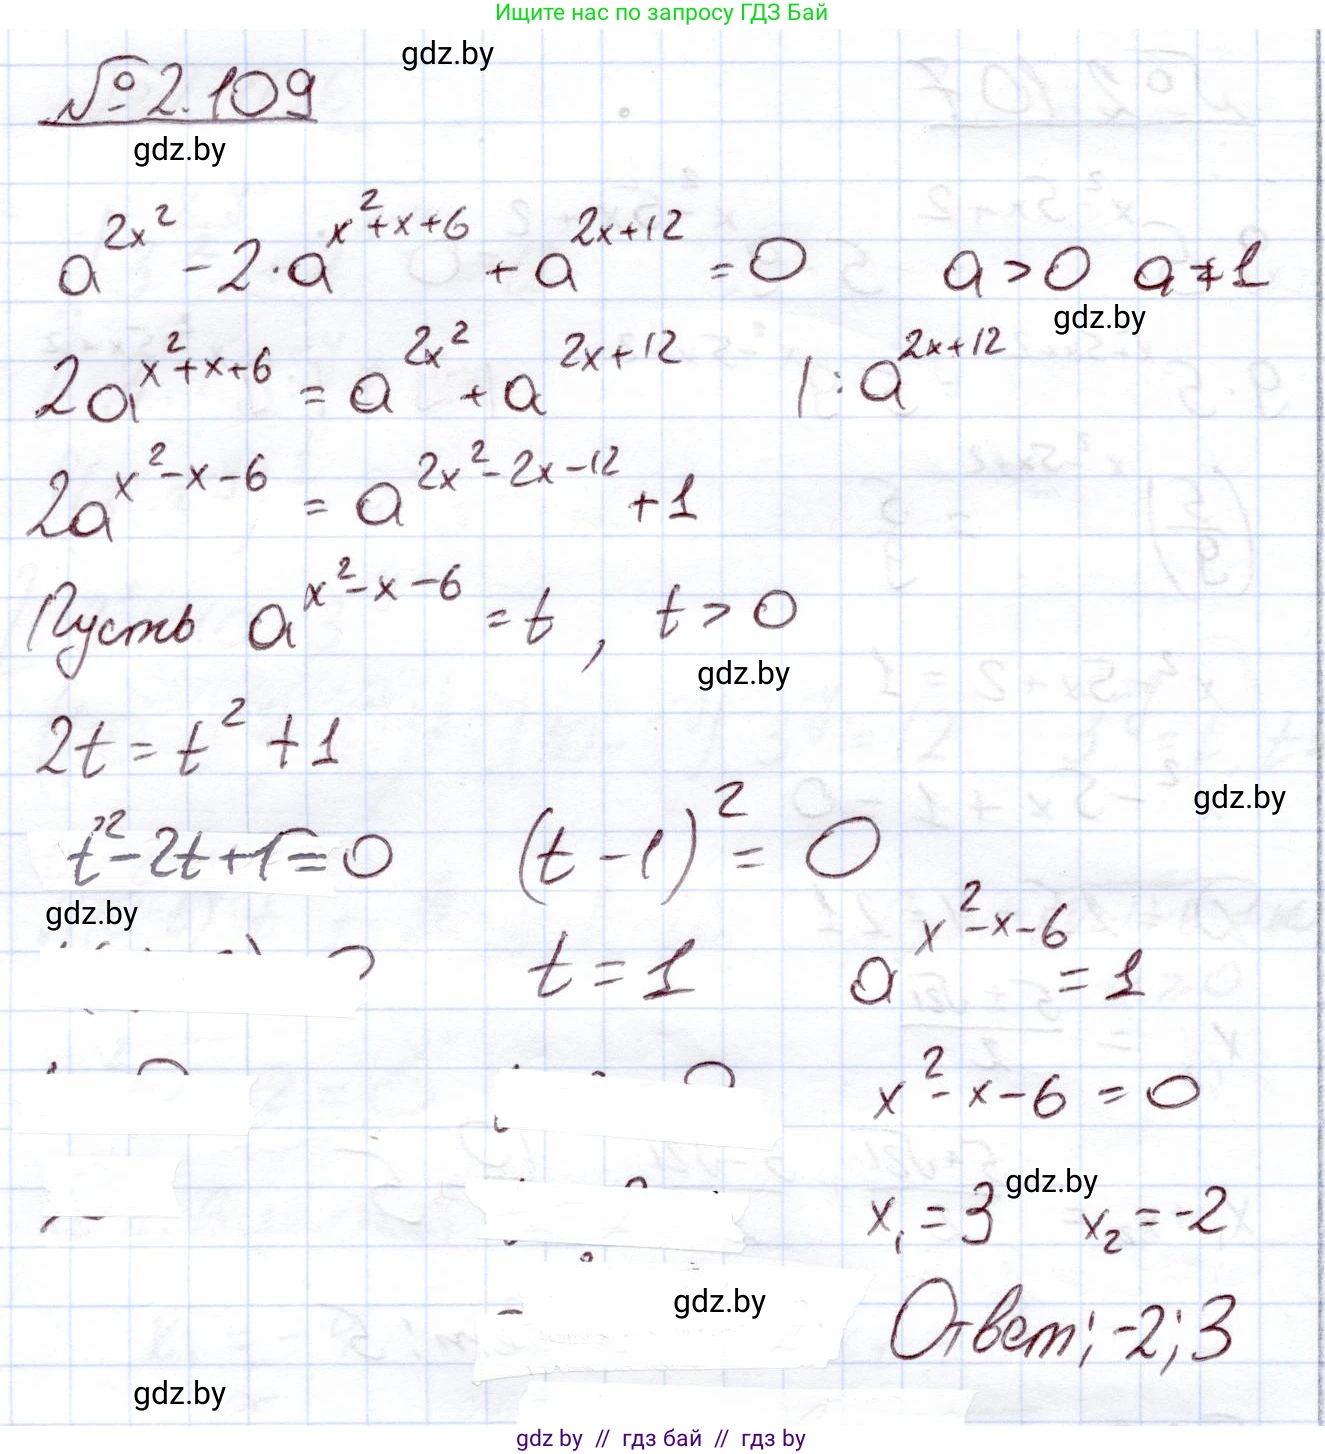 Ищите нас по запросу ГДЗ Бай
gdz.by
№ 2.109
gdz.by
a^{2x^2} - 2·a^{x^2+x+6} + a^{2x+12} = 0    a > 0  a ≠ 1
gdz.by
2a^{x^2+x+6} = a^{2x^2} + a^{2x+12}  | : a^{2x+12}
2a^{x^2-x-6} = a^{2x^2-2x-12} + 1
Пусть a^{x^2-x-6} = t, t > 0
gdz.by
2t = t^2 + 1
gdz.by
t^2 - 2t + 1 = 0    (t - 1)^2 = 0
gdz.by
t = 1    a^{x^2-x-6} = 1
x^2 - x - 6 = 0
gdz.by
x_1 = 3    x_2 = -2
gdz.by
Ответ: -2; 3
gdz.by
gdz by // гдз бай // gdz by